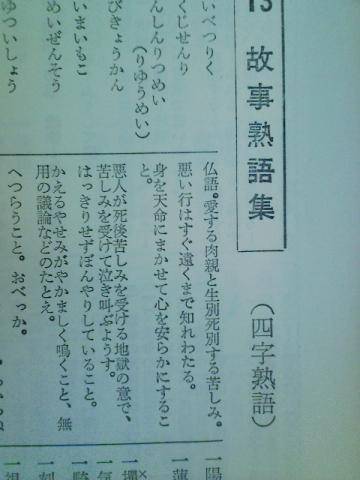 13 故事熟語集
(四字熟語)
いべつりく
くじせんり
んしんりつめい
(りゆうめい)
びきょうかん
いまいもこ
めいぜんそう
ゆついしょう
仏語。愛する肉親と生別死別する苦しみ。
悪い行はすぐ遠くまで知れわたる。
身を天命にまかせて心を安らかにするこ
と。
悪人が死後苦しみを受ける地獄の意で、
苦しみを受けて泣き叫ぶようす。
はっきりせずぼんやりしていること。
かえるやせみがやかましく鳴くこと、無
用の議論などのたとえ。
へつらうこと。おべっか。
一陽
一蓮
一擲
一気
一刻